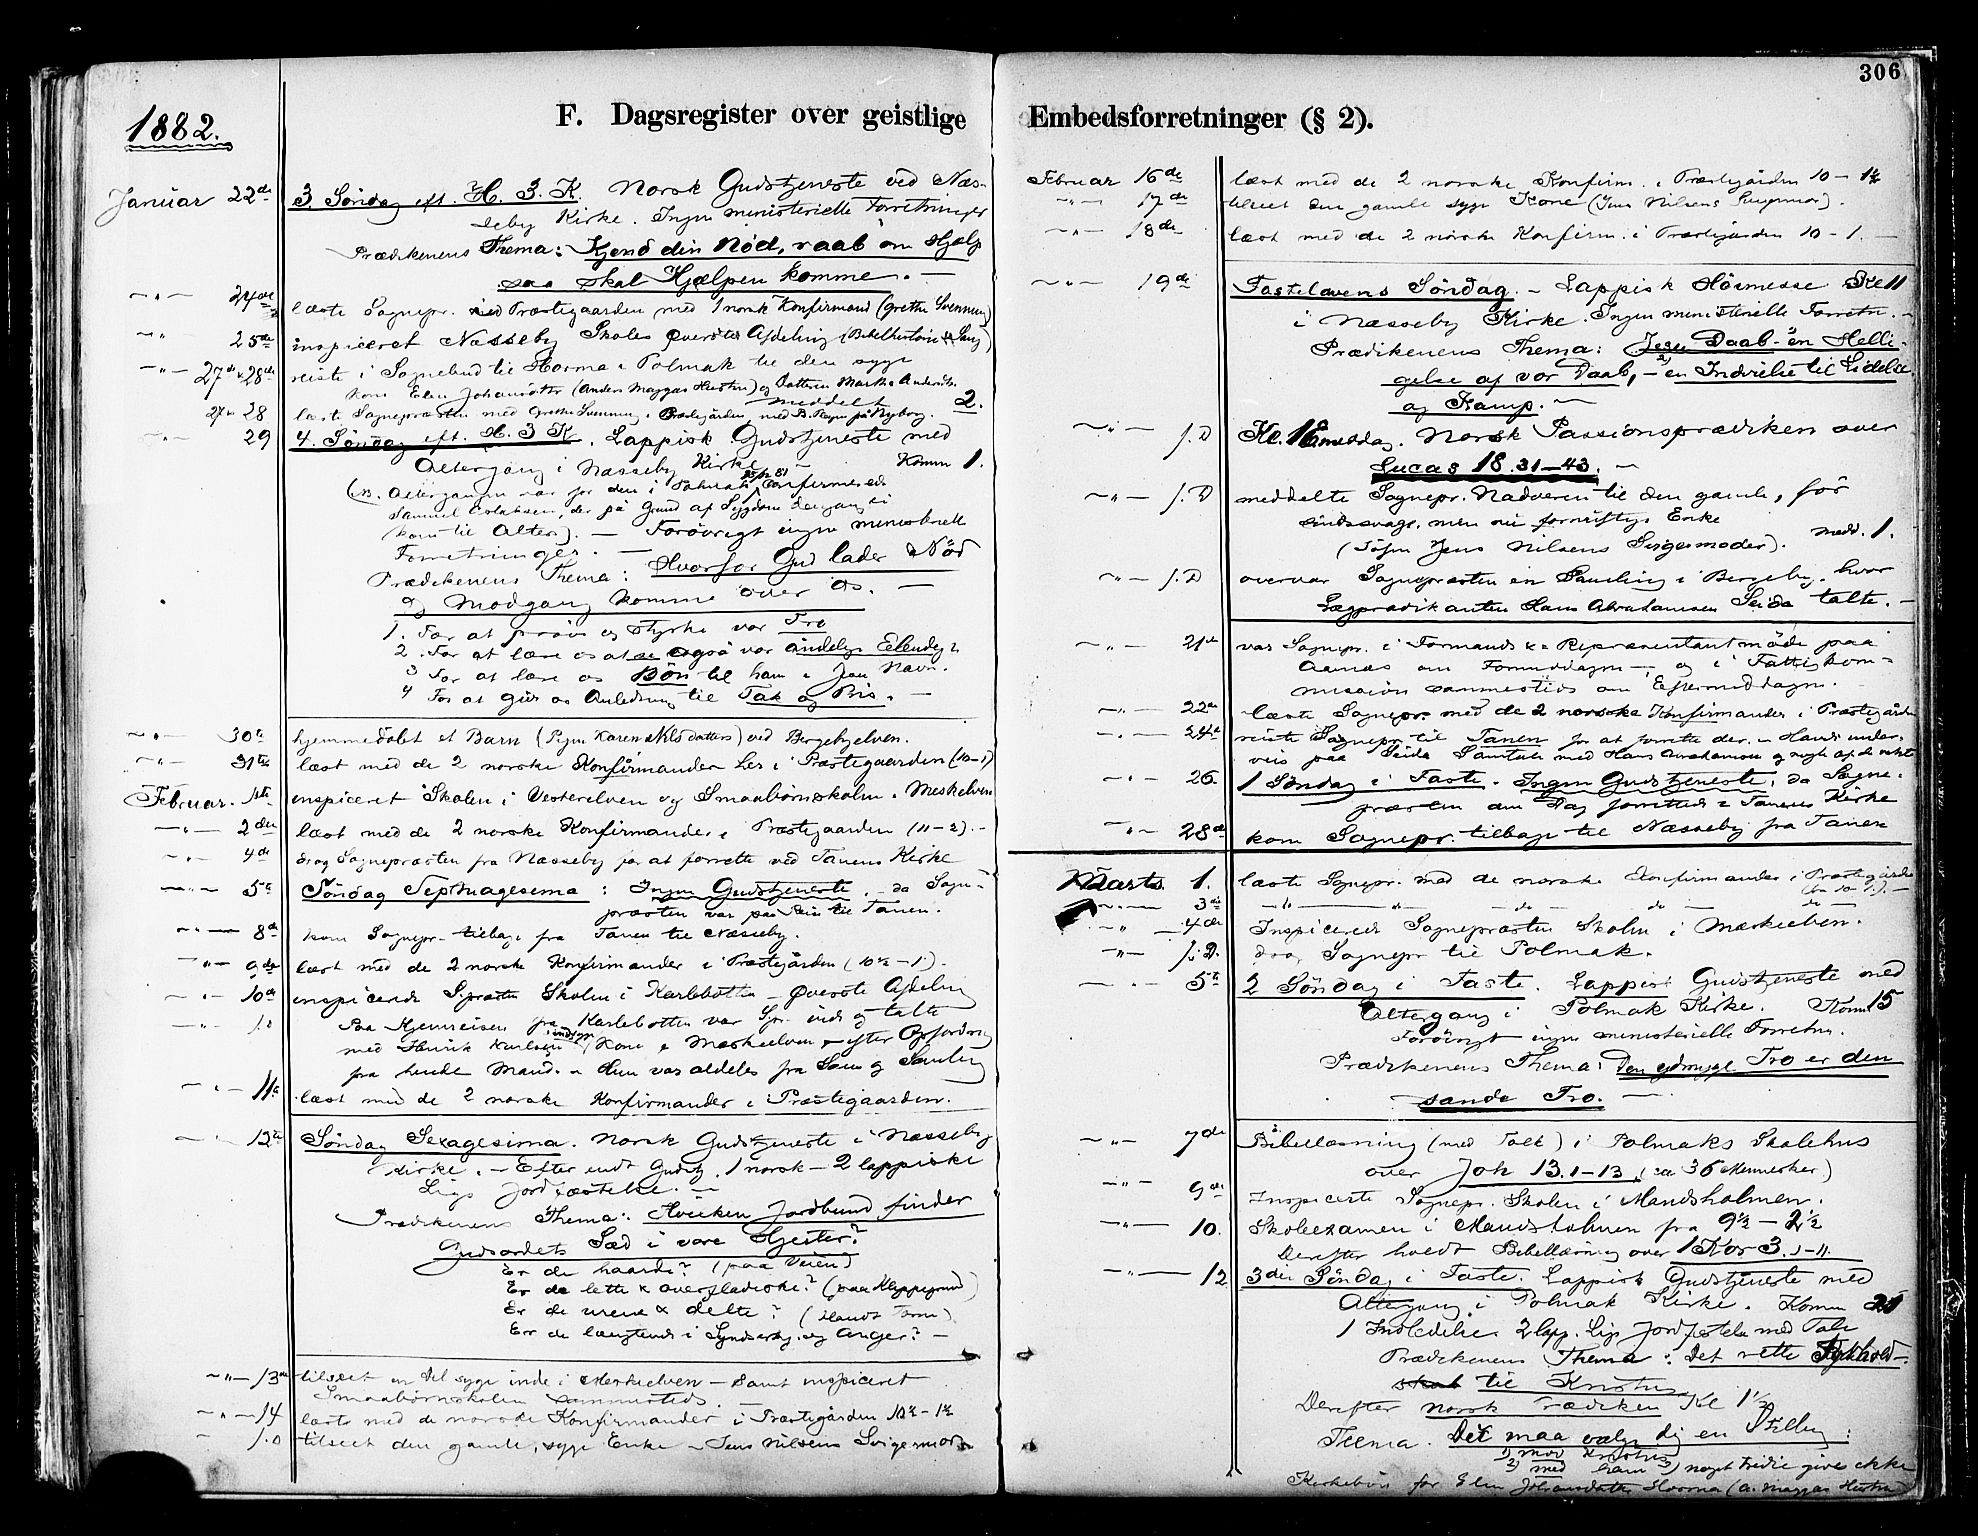 1882.
F. Dagsregister over geistlige
Januar 22de 3. Søndag eft. H. 3 K. Norsk Gudstjeneste ved Næs-
seby Kirke. Ingen ministerielle Forretninger
Prædikenens Thema: Kjend din Nød, raab om Hjælp
saa skal Hjælpen komme. —
—"— 24de læste Sognepr. ved Præstegaarden med 1 norsk Konfirmand (Grethe Svenning)
—"— 25de inspiceret Næsseby Skoles øverste Afdeling (Bibelhistorie & Sang)
—"— 27de & 28de reiste i Sognebud til Horma i Polmak til den syge
Kone Elen Johansdatter (Anders Maggas Hustru) og Marthe Andersdtr.
meddelt 2.
27de 28 læste Sognepræsten med Grethe Svenning i Prædegården med B. på Nyborg.
—"— 29 4. Søndag eft. H. 3 K. Lappisk Gudstjeneste med
Altergang i Næsseby Kirke — Komm 1.
(NB. Altergangen var for den i Polmak 25/12 81 Confirmerede
Samuel, der på Grund af Sygdom ikke
kom til Alter). — Forøvrigt ingen ministerielle
Forretninger. —
Prædikenens Thema: Hvorfor Gud lader Nød
og Modgang komme over os. —
1. For at prøve og styrke vor Tro
2. For at lære os at se også vor åndelige Elendigh.
3 For at lære os Bøn til ham i Jesu Navn.
4 For at give os Anledning til Tak og Pris. —
—"— 30te hjemmedøbt et Barn (Karen Nilsdatter) ved Bergebyelven.
—"— 31te læst med de 2 norske Konfirmander her i Præstegaarden (10-1)
Februar. 1ste inspiceret Skolen i Vesterelven og Smaabørnskolen i Meskelven
—"— 2den læst med de 2 norske Konfirmander i Præstegaarden (11-2). —
—"— 4de drog Sognepræsten fra Næsseby for at forrette ved Tanens Kirke
—"— 5te Søndag Septuagesima: Ingen Gudstjeneste, da Sogne-
præsten var paa Reise til Tanen.
—"— 8de kom Sognepr. tilbage fra Tanen til Næsseby.
—"— 9de læst med de 2 norske Konfirmander i Præstegården (10½-1).
—"— 10de inspicerede Sognepræsten Skolen i Karlebotten — øverste Afdeling
—"— s.D Paa Hjemreisen fra Karlebotten var Spr. inde og talte
med Henrik Karlsens sindssyge Kone i Meskelven efter Opfordring
fra hendes Mand. — Hun var aldeles fra Sans og Samling
—"— 11te læst med de 2 norske Konfirmander i Præstegaarden.
—"— 12te Søndag Sexagesima. Norsk Gudstjeneste i Næsseby
Kirke. — Efter endt Gudstj. 1 norsk — 2 lappiske
Ligs Jordfæstelse. —
Prædikenens Thema: Hvilken Jordbund finder
Gudsordets Sæd i vore Hjerter?
Er de haarde? (paa Veien)
Er de lette & overfladiske? (paa Klippegrund)
Er de urene & delte? (iblandt Torne)
Er de længtende i Syndserkj. og Anger? —
—"— 13de tilseet en Del syge inde i Meskelven — samt inspiceret
Smaabørnskolen sammesteds.
—"— 14 læste med de norske Konfirmander i Præstegården 10½-1½
— s.D tilseet den gamle, syge Enke — Jens Nilsens Svigermor
306
Embedsforretninger (§ 2).
Februar 16de læst med de 2 norske Konfirm. i Præstegården 10 — 1½
—"— 17de tilseet den gamle syge Kone (Jens Nilsens Svigermor).
—"— 18de læst med de 2 norske Konfirm. i Præstegården 10-1. —
—"— 19de Fastelavens Søndag. — Lappisk Høimesse Kl 11
i Næsseby Kirke. Ingen ministerielle Forretn. —
Prædikenens Thema: Jesu Daab — en Helli-
gelse af vor Daab, — en Indvielse til Lidelse
og Kamp. —
—"— s.D Kl. Norsk Passionsprædiken over
Lucas 18.31-43. —
—"— s.D meddelte Sognepr. Nadveren til den gamle, før
sindssvage, men nu fornuftige Enke
(Jens Nilsens Svigermoder). medd. 1.
—"— s.D overvar Sognepræsten en Samling i Bergeby, hvor
Lægprædikanten Hans Abrahamsen Seida talte. —
—"— 21de var Sognepr. i Formands & Repræsentantmøde paa
om Formiddagen — og i Fattigkom-
mission sammesteds om Eftermiddagen.
—"— 22de læste Sognepr. med de 2 norske Konfirmander i Præstegården
—"— 24de reiste Sognepr. til Tanen for at forrette der. —
paa Seida Samtale med Hans Abrahamsen og nogle af de
—"— 26. 1 Søndag i Faste. Ingen Gudstjeneste, da Sogne-
præsten den Dag forrettede i Tanens Kirke
—"— 28de kom Sognepr. tilbage til Næsseby fra Tanen
Marts 1. læste Sognepr. med de norske Konfirmander i Præstegården
(fra 10-1). —
—"— 3de —"— —"— —do— do — do —
—"— 4de Inspicerede Sognepræsten Skolen i Mæskelven.
—"— s.D. drog Sognepr til Polmak.
—"— 5te 2 Søndag i Faste. Lappisk Gudstjeneste med
Altergang i Polmak Kirke. Komm 15
Forøvrigt ingen ministerielle Forretn.
Prædikenens Thema: Den ydmyge Tro er den
sande Tro. —
—"— 7de Bibellæsning (med Tolk) i Polmaks Skolehus
over Joh 13.1-13. (ca 36 Mennesker)
—"— 9de Inspicerte Sognepr. Skolen i Mandsholmen.
—"— 10. Skoleexamen i Mandsholmen fra 9½ — 2½
Derefter holdt Bibellæsning over 1 Kor 3.1-11.
—"— 12 3die Søndag i Faste. Lappisk Gudstjeneste med
Altergang i Polmak Kirke. Komm 21
1 Indledelse 2 lapp. Ligs Jordfæstelse med Tale
Prædikenens Thema: Det rette Forhold
til Kristus
Derefter norsk Prædiken Kl 1½
Thema. Det maa vælge dig en Stilling:
1) mod Kristus
2) med ham 3) noget tredie gives ikke
Kirkebøn for Elen Johansdatter Horma (A. Maggas Hustru)